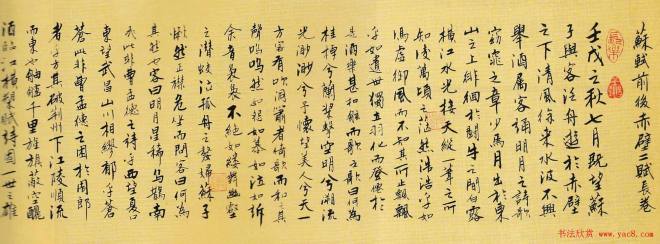 蘇賦前後赤壁二賦長卷
壬戌之秋七月既望蘇
子與客泛舟遊於赤壁
之下清風徐來水波不興
舉酒屬客誦明月之詩歌
窈窕之章少焉月出於東
山之上徘徊於斗牛之間白露
橫江水光接天縱一葦之所
如凌萬頃之茫然浩浩乎如
馮虛御風而不知其所止飄飄
乎如遺世獨立羽化而登僊於
是酒樂甚扣舷而歌之歌曰
桂棹兮蘭槳擊空明兮溯流
光渺渺兮予懷望美人兮天一
方客有吹洞簫者倚歌而和其
聲嗚嗚然如怨如慕如泣如訴
餘音裊裊不絕如縷舞幽壑
之潛蛟泣孤舟之嫠婦蘇子
愀然正襟危坐而問客曰何為
其然也客曰月明星稀烏鵲南
飛此非曹孟德之詩乎西望夏口
東望武昌山川相繆鬱乎蒼
蒼此非曹孟德之困於周郎
者乎方其破荊州下江陵順流
而東也舳艫千里旌旗蔽空釃
酒臨江橫槊賦詩固一世之雄
书法欣赏
www.yac8.com